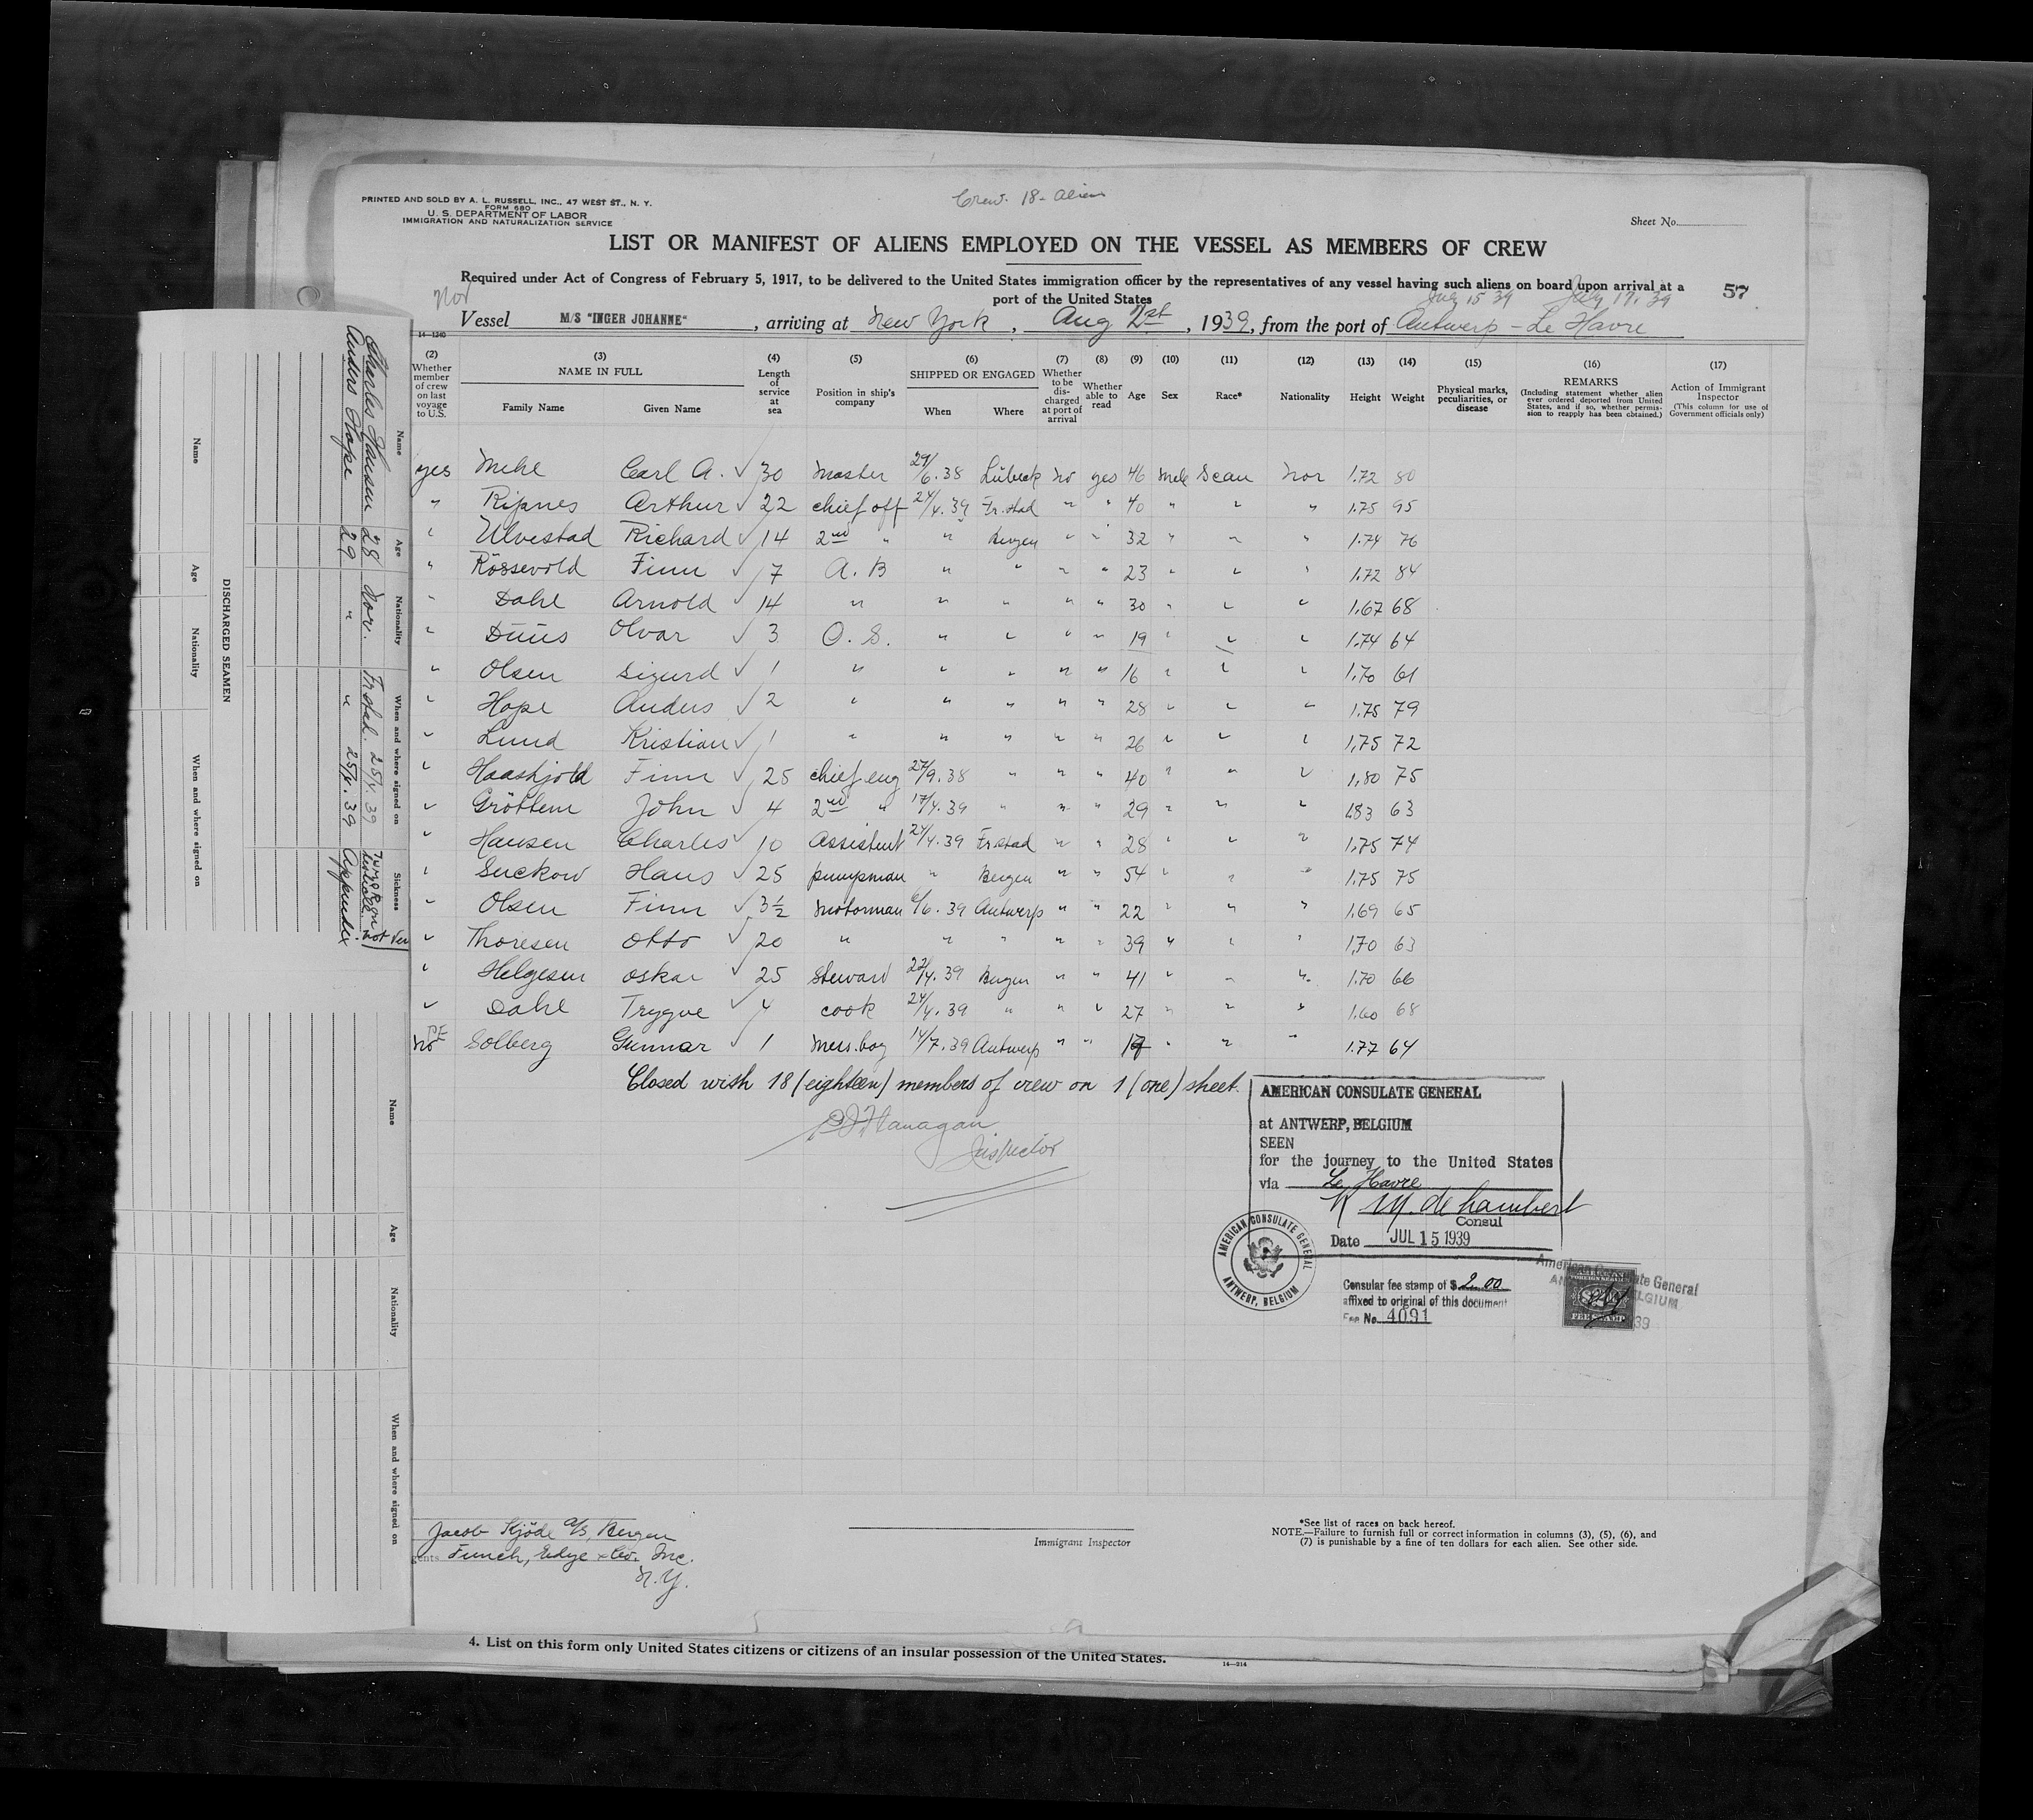 Crew. 18 - Aliens
PRINTED AND SOLD BY A. L. RUSSELL, INC., 47 WEST ST., N. Y.
FORM 680
U. S. DEPARTMENT OF LABOR
IMMIGRATION AND NATURALIZATION SERVICE
Sheet No.
LIST OR MANIFEST OF ALIENS EMPLOYED ON THE VESSEL AS MEMBERS OF CREW
Required under Act of Congress of February 5, 1917, to be delivered to the United States immigration officer by the representatives of any vessel having such aliens on board upon arrival at a
port of the United States
57
Nor
July 15 39 July 17. 39
Vessel M/S "INGER JOHANNE" , arriving at New York , Aug 2st , 1939, from the port of Antwerp - Le Havre
14-1240
(2) Whether member of crew on last voyage to U.S. (3) NAME IN FULL Family Name Given Name (4) Length of service at sea (5) Position in ship's company (6) SHIPPED OR ENGAGED When Where (7) Whether to be discharged at port of arrival (8) Whether able to read (9) Age (10) Sex (11) Race* (12) Nationality (13) Height (14) Weight (15) Physical marks, peculiarities, or disease (16) REMARKS (Including statement whether alien ever ordered deported from United States, and if so, whether permission to reapply has been obtained.) (17) Action of Immigrant Inspector (This column for use of Government officials only)
yes Mehl Carl A. ✓ 30 Master 29/6.38 Lübeck No yes 46 Male Scan Nor 1.72 80
" Ripnes Arthur ✓ 22 chief off 24/4.39 Fr.stad " " 40 " " " 1.75 95
" Ulvestad Richard ✓ 14 2nd " " Bergen " " 32 " " " 1.74 76
" Rössevold Finn ✓ 7 A. B " " " " 23 " " " 1.72 84
" Dahl Arnold ✓ 14 " " " " " 30 " " " 1.67 68
" Düüs Olvar ✓ 3 O. S. " " " " 19 " " " 1.74 64
" Olsen Sigurd ✓ 1 " " " " " 16 " " " 1.70 61
" Hope Anders ✓ 2 " " " " " 28 " " " 1.75 79
" Lund Kristian ✓ 1 " " " " " 26 " " " 1,75 72
" Haaskjold Finn ✓ 25 chief eng 27/9.38 " " " 40 " " " 1,80 75
" Gröttem John ✓ 4 2nd " 17/4.39 " " " 29 " " " 1.83 63
" Hansen Charles ✓ 10 Assistent 24/4.39 Fr.stad " " 28 " " " 1.75 74
" Suckow Hans ✓ 25 pumpman " Bergen " " 54 " " " 1.75 75
" Olsen Finn ✓ 3½ Motorman 6/6.39 Antwerp " " 22 " " " 1.69 65
" Thoresen Otto ✓ 20 " " " " " 39 " " " 1,70 63
" Helgesen Oskar ✓ 25 Steward 22/4.39 Bergen " " 41 " " " 1.70 66
" Dahl Trygve ✓ 4 cook 24/4.39 " " " 27 " " " 1.60 68
No Solberg Gunnar ✓ 1 Mess.boy 14/7.39 Antwerp " " 17 " " " 1.77 64
Closed with 18 (eighteen) members of crew on 1 (one) sheet.
Flanagan
Inspector
AMERICAN CONSULATE GENERAL
at ANTWERP, BELGIUM
SEEN
for the journey to the United States
via Le Havre
Consul
Date JUL 15 1939
AMERICAN CONSULATE GENERAL
ANTWERP, BELGIUM
Consular fee stamp of $ 2.00
affixed to original of this document
Fee No. 4091
American Consulate General
FEE STAMP
Jacob Kjöde A/S, Bergen
Funch, Edye & Co. Inc.
N.Y.
Immigrant Inspector
*See list of races on back hereof.
NOTE.—Failure to furnish full or correct information in columns (3), (5), (6), and
(7) is punishable by a fine of ten dollars for each alien. See other side.
4. List on this form only United States citizens or citizens of an insular possession of the United States.
14-214
DISCHARGED SEAMEN
Name Age Nationality When and where signed on Sickness
Charles Hansen 28 Nor. Fr.stad. 25/4.39
Anders Hope 29 " " 25/4.39 Appendix
Name Age Nationality When and where signed on
Name Age Nationality When and where signed on